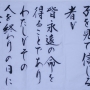 子を見て信じる
者が
皆永遠の命を
得ることであり
わたしがその
人を終わりの日に